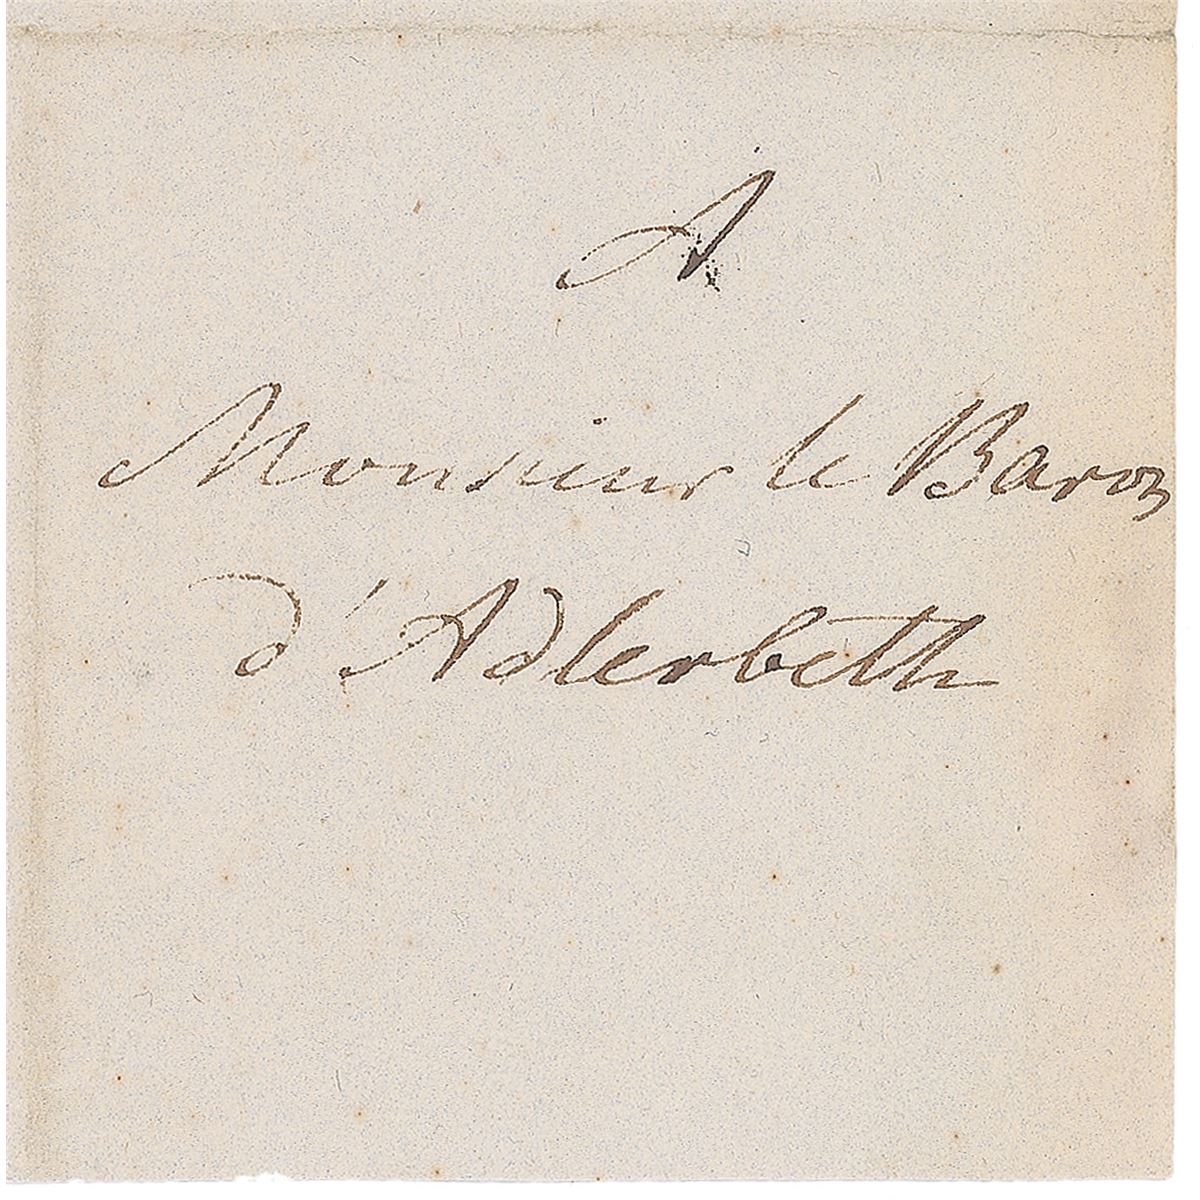 A
Monsieur le Baron
d'Adlerbeth